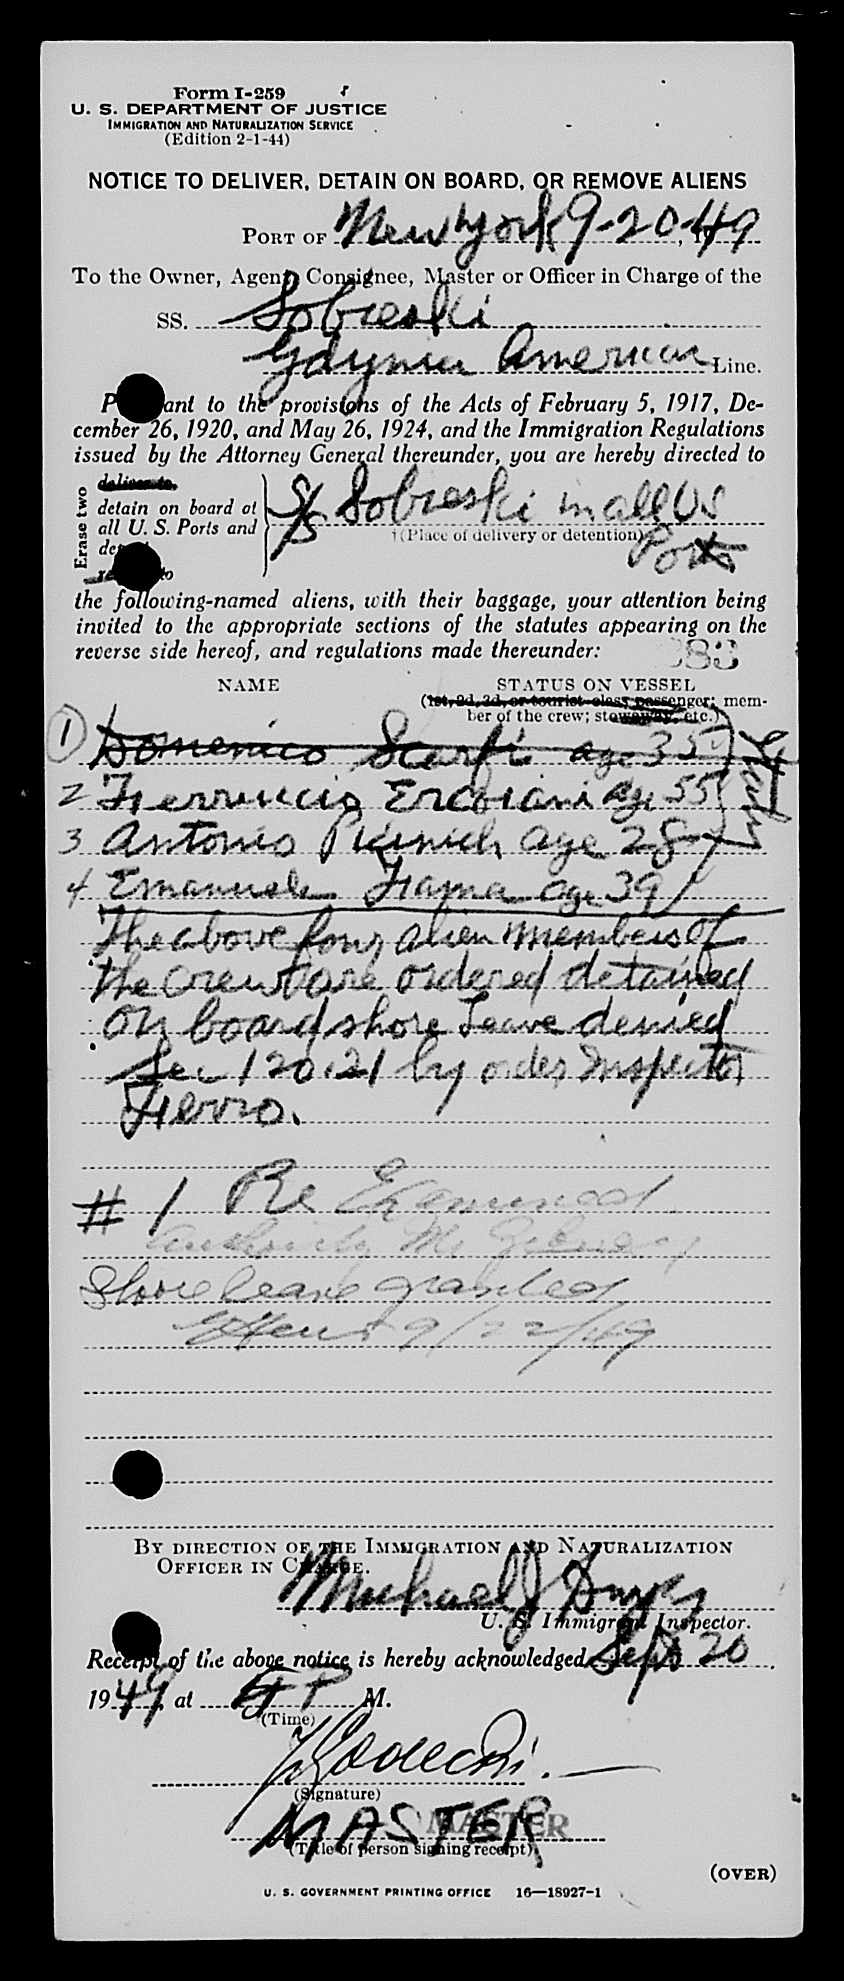 Form I-259
U. S. DEPARTMENT OF JUSTICE
IMMIGRATION AND NATURALIZATION SERVICE
(Edition 2-1-44)
NOTICE TO DELIVER, DETAIN ON BOARD, OR REMOVE ALIENS
PORT OF New York 9-20, 1949
To the Owner, Agent, Consignee, Master or Officer in Charge of the
SS. Sobieski
Gdynia American Line.
P ant to the provisions of the Acts of February 5, 1917, De-
cember 26, 1920, and May 26, 1924, and the Immigration Regulations
issued by the Attorney General thereunder, you are hereby directed to
Erase two
deliver to,
detain on board at
all U. S. Ports and
S/S Sobieski in all US
(Place of delivery or detention)
Ports
the following-named aliens, with their baggage, your attention being
invited to the appropriate sections of the statutes appearing on the
reverse side hereof, and regulations made thereunder:
383
NAME STATUS ON VESSEL
(1st, 2d, 3d, or tourist class passenger; mem-
ber of the crew; stowaway, etc.)
1 Domenico Scarfi age 35
2 Ferruccio Ercolani age 55
3 Antonio Picinich age 28
4 Emanuele Fiama age 39
The above four alien members of
the crew are ordered detained
on board shore leave denied
Sec 120.21 by order Inspector
Fierro.
# 1 Re Examined
authority Mr
Shore leave granted
9/22/49
BY DIRECTION OF THE IMMIGRATION AND NATURALIZATION
OFFICER IN CHARGE.
Michael J
U. S. Immigrant Inspector.
Receipt of the above notice is hereby acknowledged Sept 20
1949, at P M.
(Time)
(Signature)
MASTER MASTER
(Title of person signing receipt)
(OVER)
U. S. GOVERNMENT PRINTING OFFICE 16—18927-1